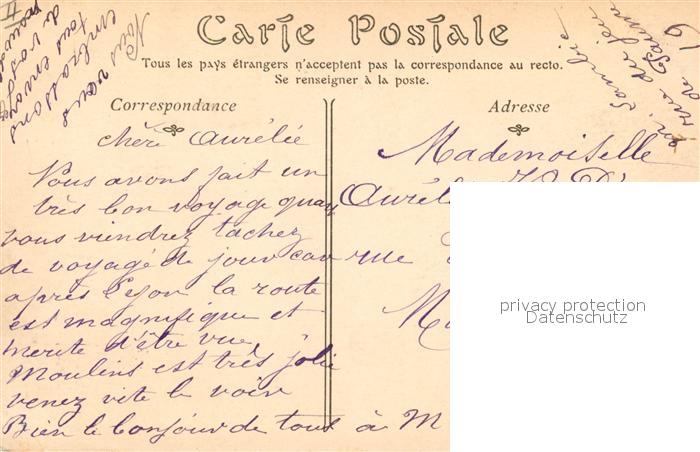 Carte Postale
Tous les pays étrangers n'acceptent pas la correspondance au recto.
Se renseigner à la poste.
Correspondance
chère Aurélie
Nous avons fait un
très bon voyage quand
vous viendrez tachez
de voyagé de jour car
après Lyon la route
est magnifique et
merite d'être vue,
Moulins est très jolie
venez vite le voir
Bien le bonjour de tous à M
Nous vous
embrassons
tous
Adresse
Mademoiselle
rue
19
rue du jeu
de Paume
privacy protection
Datenschutz